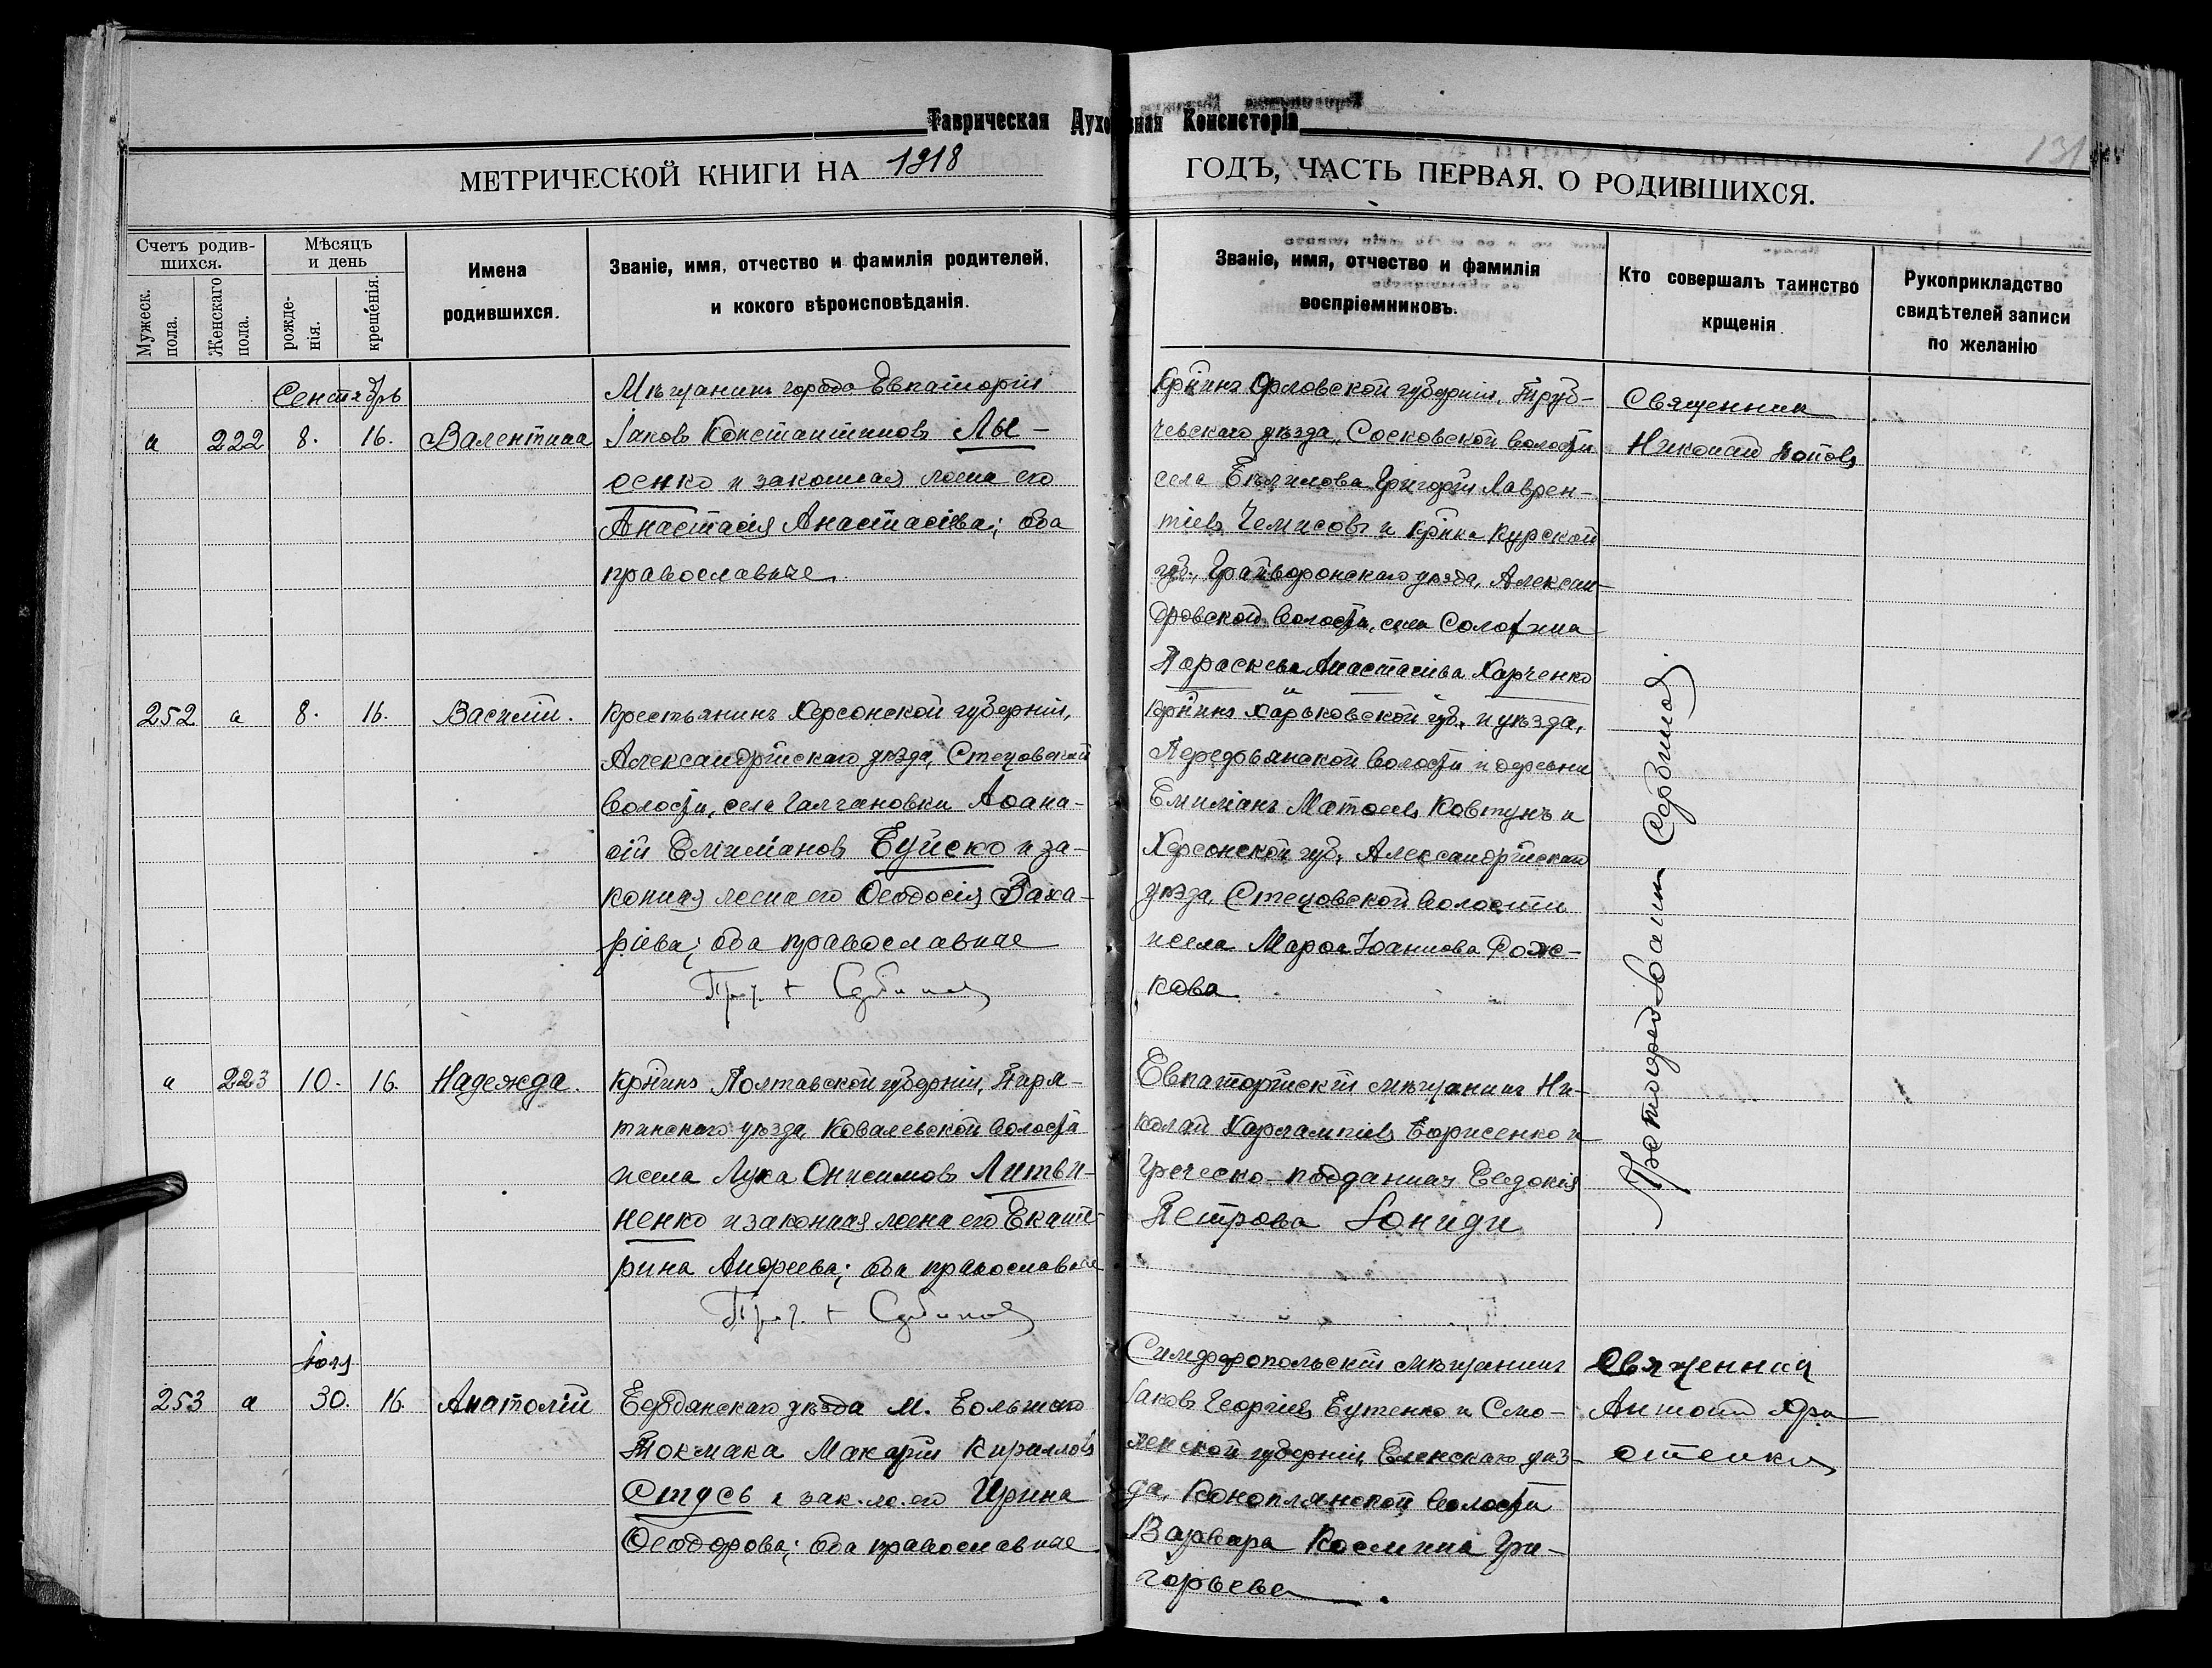 Таврическая Духовная Консисторія
131
МЕТРИЧЕСКОЙ КНИГИ НА 1918 ГОДЪ, ЧАСТЬ ПЕРВАЯ. О РОДИВШИХСЯ.
Счетъ родив-
шихся.
Мужеск.
пола.
Женскаго
пола.
Мѣсяцъ
и день
рожде-
нія.
крещенія.
Имена
родившихся.
Званіе, имя, отчество и фамилія родителей,
и кокого вѣроисповѣданія.
Званіе, имя, отчество и фамилія
воспріемниковъ.
Кто совершалъ таинство
крщенія
Рукоприкладство
свидѣтелей записи
по желанію
Сентябрь
а 222 8. 16. Валентина
Мѣщанинъ города Евпаторіи
Іаковъ Константиновъ Лы-
сенко и законная жена его
Анастасія Анастасіева; оба
православные
Кр-нинъ Орловской губерніи, Труб-
чевскаго уѣзда, Сосковской волости
села Григорій Лаврен-
тіевъ Чемисовъ и кр-нка Курской
губ., Грайворонскаго уѣзда, Алексан-
дровской волости, села Солохина
Параскева Анастасіева Харченко
Священник
Николай Поповъ
252 а 8. 16. Василій.
Крестьянинъ Херсонской губерніи,
Александрійскаго уѣзда, Стецовской
волости, села Галгановки Аѳана-
сій Емиліановъ Буйско и за-
конная жена его Ѳеодосія Заха-
ріева; оба православные
Кр-нинъ Харьковской губ. и уѣзда,
волости и деревни
Емиліанъ Матѳеевъ Ковтунъ и
Херсонской губ. Александрійскаго
уѣзда, Стецовской волости
и села Марѳа Іоаннова Рож-
кова.
Протоіерей Іоанн Сербинов
а 223 10. 16. Надежда.
Кр-нинъ Полтавской губерніи, Пиря-
тинскаго уѣзда, Ковалевской волости
и села Лука Онисимовъ Литви-
ненко и законная жена его Екате-
рина Андреева; оба православные
Евпаторійскій мѣщанинъ Ни-
колай Харлампіевъ Борисенко и
греческо-подданная Евдокія
Петрова Іониди
Іюля
253 а 30. 16 Анатолій
Бердянскаго уѣзда м. Большого
Токмака Макарій Кирилловъ
Стусь и зак. ж. его Ирина
Ѳеодорова; оба православные
Симферопольскій мѣщанинъ
Іаковъ Георгіевъ Бутенко и Смо-
ленской губерніи, уѣз-
да, Коноплянской волости
Варвара Космина Гри-
горьева.
Священник